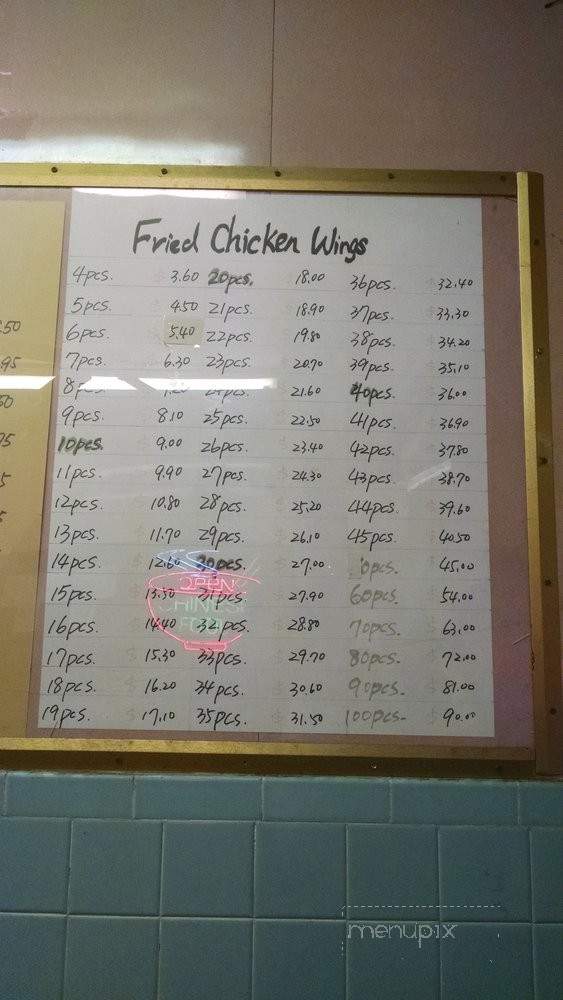 Fried Chicken Wings
4pcs. 3.60
5pcs. 4.50
6pcs. 5.40
7pcs. 6.30
8pcs. 7.20
9pcs. 8.10
10pcs. 9.00
11pcs. 9.90
12pcs. 10.80
13pcs. 11.70
14pcs. 12.60
15pcs. 13.50
16pcs. 14.40
17pcs. 15.30
18pcs. 16.20
19pcs. 17.10
20pcs. 18.00
21pcs. 18.90
22pcs. 19.80
23pcs. 20.70
24pcs. 21.60
25pcs. 22.50
26pcs. 23.40
27pcs. 24.30
28pcs. 25.20
29pcs. 26.10
30pcs. 27.00
31pcs. 27.90
32pcs. 28.80
33pcs. 29.70
34pcs. 30.60
35pcs. 31.50
36pcs. 32.40
37pcs. 33.30
38pcs. 34.20
39pcs. 35.10
40pcs. 36.00
41pcs. 36.90
42pcs. 37.80
43pcs. 38.70
44pcs. 39.60
45pcs. 40.50
0pcs. 45.00
60pcs. 54.00
70pcs. 63.00
80pcs. 72.00
90pcs. 81.00
100pcs. 90.00
OPEN
CHINESE
FOOD
.50
.95
50
75
5
menupix